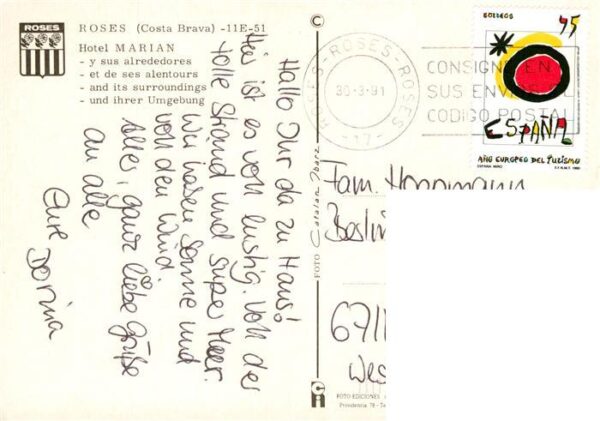 ROSES
ROSES (Costa Brava) -11E-51
Hotel MARIAN
- y sus alrededores
- et de ses alentours
- and its surroundings
- und ihrer Umgebung
Hallo Ihr da zu Haus!
Hier ist es voll lustig. von der
tolle Strand und super Meer.
Wir haben Sonne und
von den Wind
Alles, ganz liebe Grüße
an alle
Eure
Dorina
ROSES-ROSES
30-3-91
-17-
CONSIGNE EN
SUS ENVIOS EL
CODIGO POSTAL
CORREOS
45
ESPAÑA
AÑO EUROPEO DEL TURISMO
Fam. Hoppmann
Berlin
671
Wes
FOTO
FOTO EDICIONES